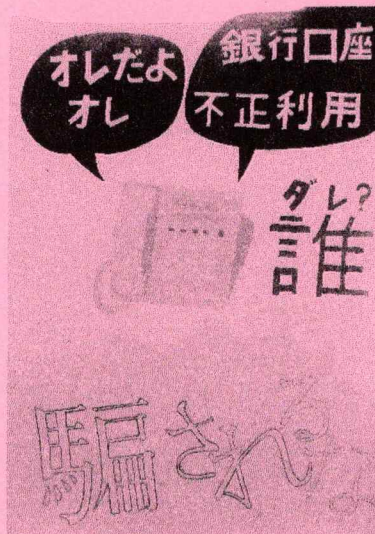 オレだよ
オレ
銀行口座
不正利用
ダレ?
誰
騙され